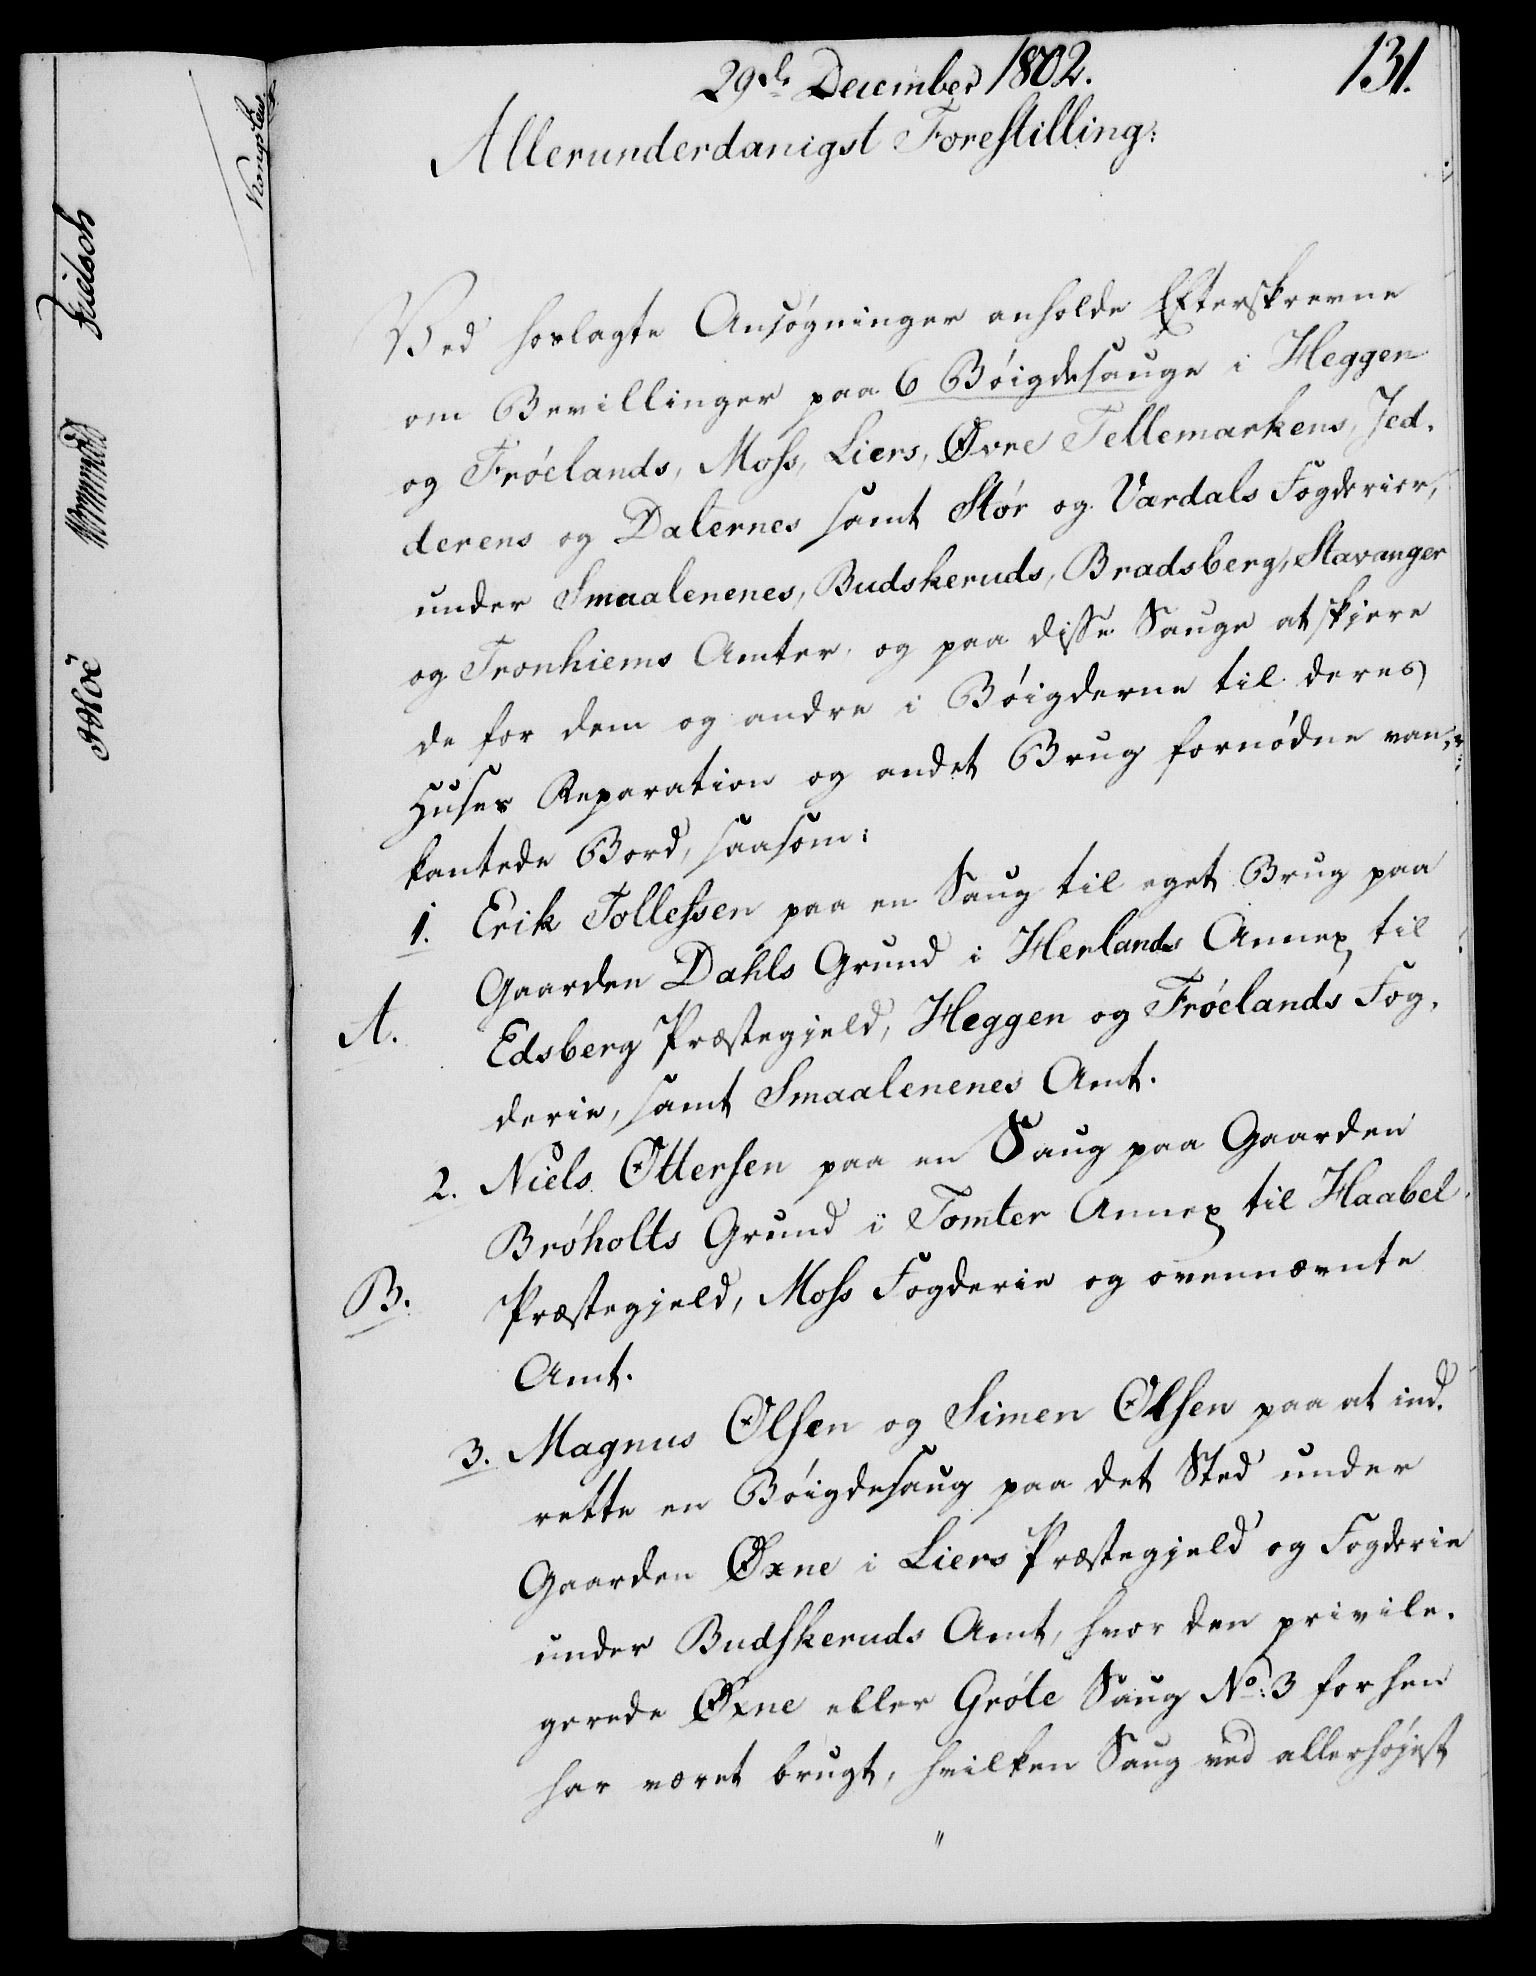 29de December 1802.
131.
Allerunderdanigst Forestilling:
Ved hoslagte Ansøgninger anholde Efterskrevne
om Bevillinger paa 6 Bøigdesauge i Heggen
og Frøelands, Moss, Liers, Øvre Tellemarkens, Jed-
derens og Dalernes samt Stør og Værdals Fogderier,
under Smaalenenes, Budskeruds, Bradsberg, Stavanger
og Tronhiems Amter, og paa disse Sauge at skjere
de for dem og andre i Bøigderne til deres
Huses Reparation og andet Brug fornødne van-
kantede Bord, saasom:
1. Erik Tollefsen paa en Saug til eget Brug paa
Gaarden Dahls Grund i Herlands Annex til
A. Edsberg Præstegjeld, Heggen og Frøelands Fog-
derie, samt Smaalenenes Amt.
2. Niels Ottersen paa en Saug paa Gaarden
Brøholts Grund i Tomter Annex til Haabel
B. Præstegjeld, Moss Fogderie og ovennævnte
Amt.
3. Magnus Olsen og Simen Olsen paa at ind-
rette en Bøigdesaug paa det Sted under
Gaarden Øxne i Liers Præstegjeld og Fogderie
under Budskeruds Amt, hvor den privile-
gerede Øxne eller Grøte Saug No: 3 forhen
har været brugt, hvilken Saug ved allerhøjest